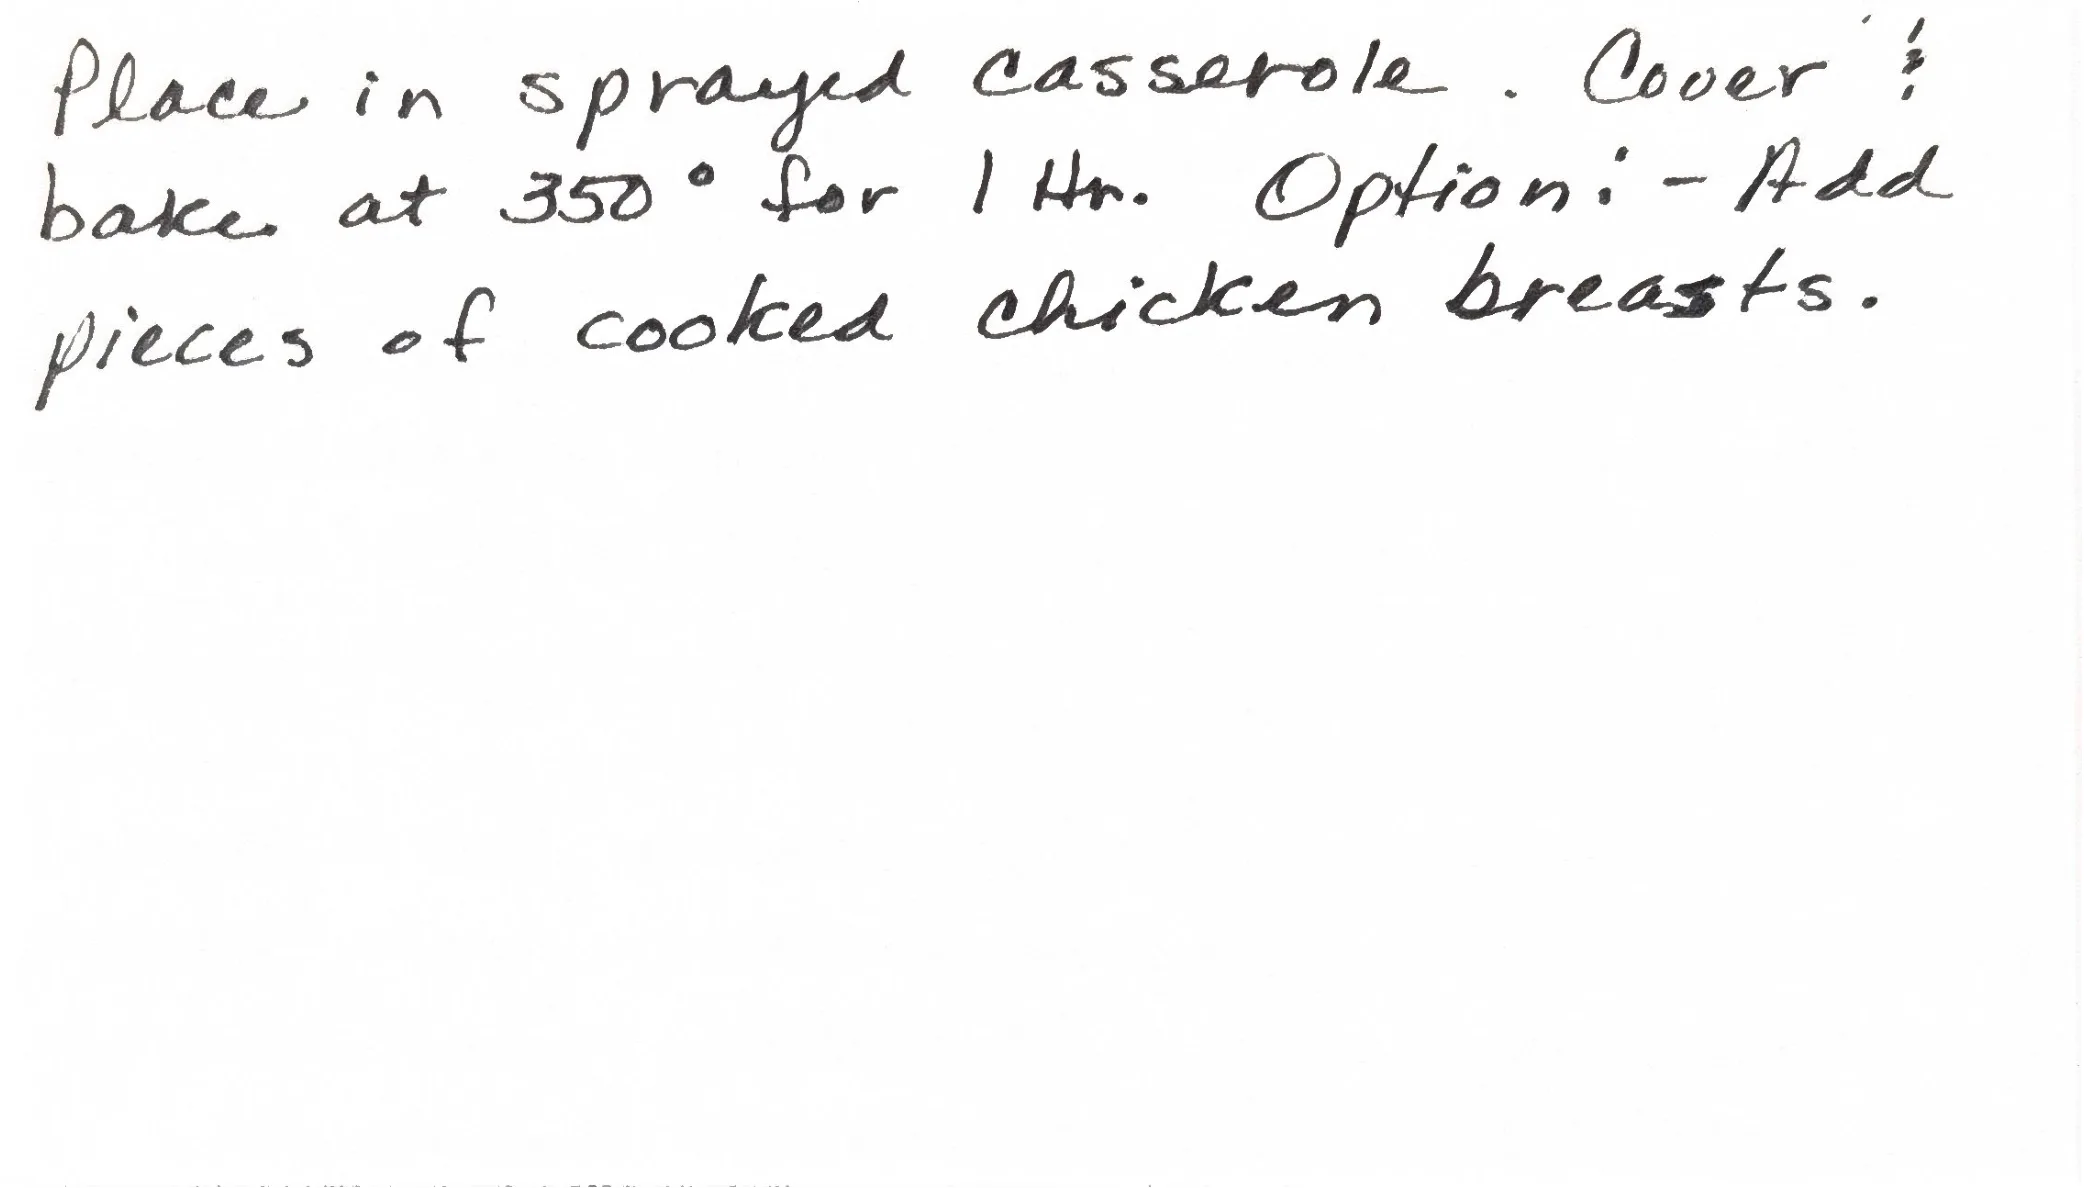 Place in sprayed casserole. Cover &
bake at 350° for 1 Hr. Option:- Add
pieces of cooked chicken breasts.